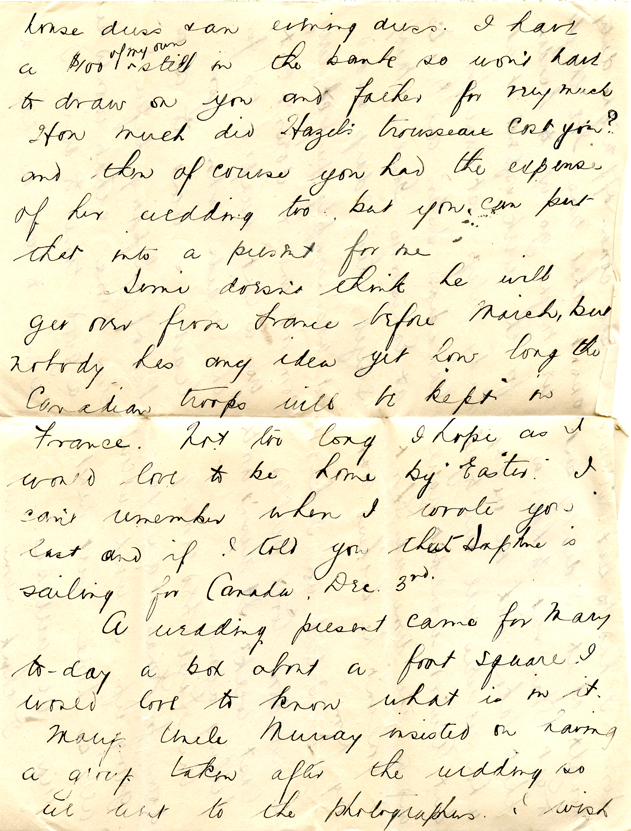 house dress & an evening dress. I have
a $100 of my own still in the bank so won't have
to draw on you and father for very much
How much did Hazel's trousseau cost you?
and then of course you had the expense
of her wedding too, but you can put
that into a present for me
doesn't think he will
get over from France before March, but
nobody has any idea yet how long the
Canadian troops will be kept in
France. Not too long I hope as I
would love to be home by Easter. I
can't remember when I wrote you
last and if I told you that Daphne is
sailing for Canada, Dec. 3rd.
A wedding present came for Mary
to-day a box about a foot square. I
would love to know what is in it.
Mary's Uncle Murray insisted on having
a group taken after the wedding so
we went to the photographers. I wish